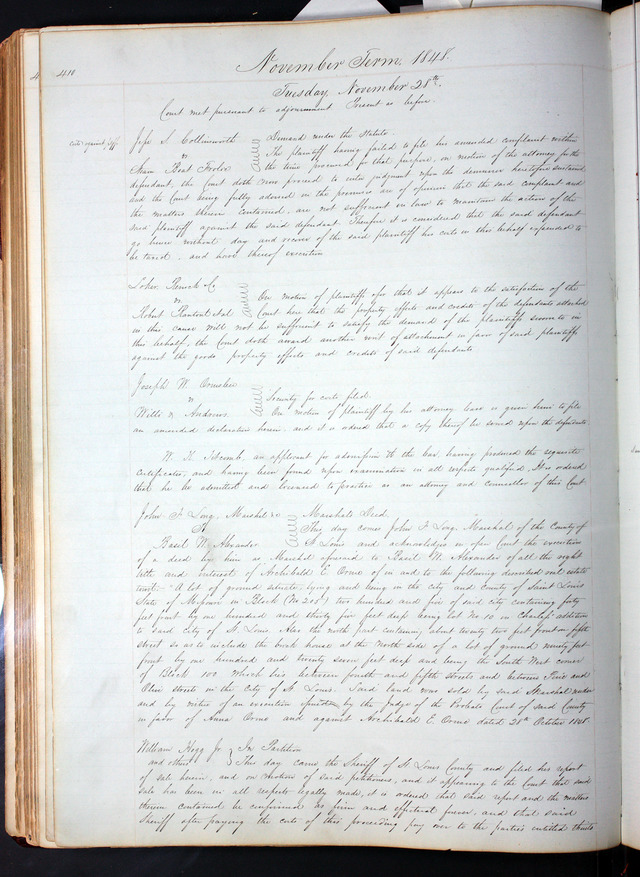 410
November Term, 1848.
Tuesday November 28th
Court met pursuant to adjournment Present as before.
Jesse S. Collinsworth Demand under the statute
vs The plaintiff having failed to file his amended complaint within
Steam Boat the time procured for that purpose, on motion of the attorney for the
defendant, the Court doth now proceed to enter judgment upon the demurrer heretofore sustained
and the Court being fully advised in the premises are of opinion that the said complaint and
the matters therein contained, are not sufficient in law to maintain the action of the
said plaintiff against the said defendant. Therefore it is considered that the said defendant
go hence without day and recover of the said plaintiff his costs in this behalf expended to
be taxed, and have thereof execution
vs On motion of plaintiffs &for that it appears to the satisfaction of the
Robert et al Court here that the property effects and credits of the defendants attached
in this cause will not be sufficient to satisfy the demand of the plaintiffs sworn to in
this behalf, the Court doth award another writ of attachment in favor of said plaintiffs
against the goods property effects and credits of said defendants
Joseph W. Ormsbee
vs Security for costs filed.
Wills & Andrews. On motion of plaintiff by his attorney leave is given him to file
an amended declaration herein, and it is ordered that a copy thereof be served upon the defendants
W. H. an applicant for admission to the bar having produced the requisite
certificates, and having been found upon examination in all respects qualified, It is ordered
that he be admitted and licensed to practice as an attorney and counsellor of this Court
John F. Long, Marshal &c Marshals Deed
To This day comes John F. Long, Marshal of the County of
Basil W. Alexander St Louis and acknowledges in open Court the execution
of a deed by him as Marshal aforesaid to Basil W. Alexander of all the right
title and interest of Archibald E. Orme of in and to the following described real estate
towit: A lot of ground situate lying and being in the city and county of Saint Louis
State of Missouri in Block (No 205) two hundred and five of said city containing fifty
feet front by one hundred and thirty five feet deep being lot No 10 in Charless' addition
to said City of St. Louis. Also the north part containing about twenty two feet front on fifth
street so as to include the brick house at the North side of a lot of ground ninety feet
front by one hundred and twenty seven feet deep and being the South West corner
of Block 100 which lies between fourth and fifth Streets and between Pine and
Olive streets in the city of St. Louis. Said land was sold by said Marshal under
and by virtue of an execution issued by the Judge of the Probate Court of said County
in favor of Anna Orme and against Archibald E. Orme dated 28th October 1848.
William Hogg Jr In Partition
and others This day came the Sheriff of St Louis County and filed his report
of sale herein, and on motion of said petitioners, and it appearing to the Court that said
sale has been in all respects legally made, it is ordered that said report and the matters
therein contained be confirmed as firm and effectual forever, and that said
Sheriff after paying the costs of this proceeding pay over to the parties entitled thereto